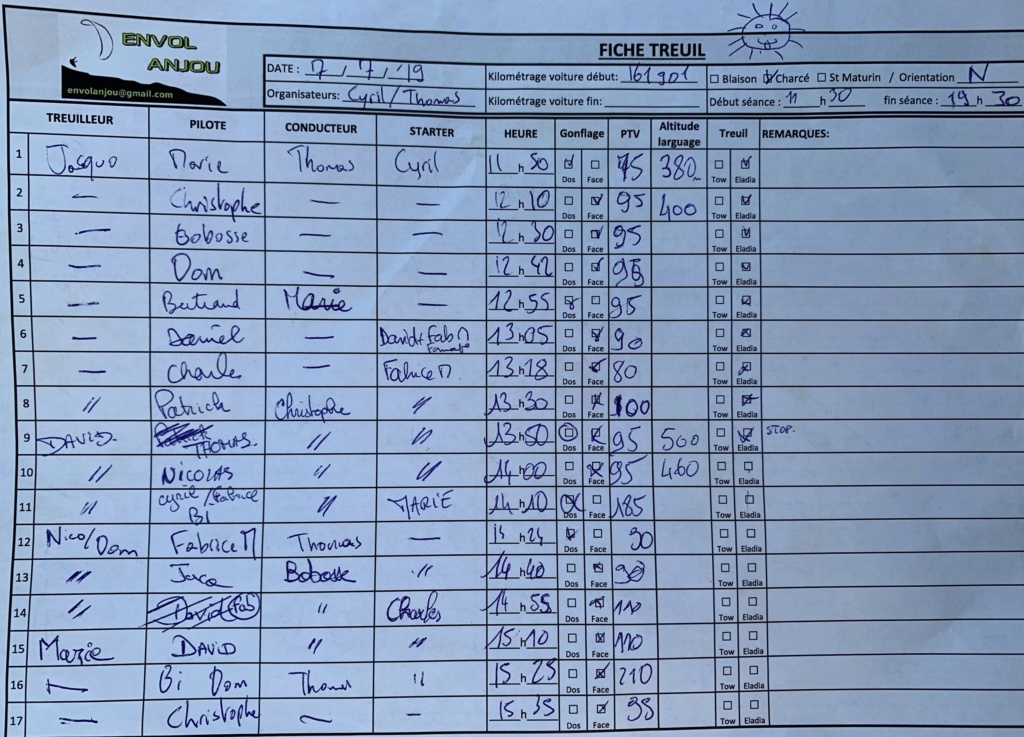 ENVOL
ANJOU
envolanjou@gmail.com
FICHE TREUIL
DATE : 7 / 7 / '19
Kilométrage voiture début: 161901
☐ Blaison ☑ Charcé ☐ St Maturin / Orientation N
Organisateurs: Cyril / Thomas
Kilométrage voiture fin:
Début séance : 11 h 30 fin séance : 19 h 30
TREUILLEUR PILOTE CONDUCTEUR STARTER HEURE Gonflage PTV Altitude larguage Treuil REMARQUES:
1 Marie Thomas Cyril 11 h 50 Dos Face 75 380 Tow Eladia
2 — Christophe — — 12 h 10 Dos Face 95 400 Tow Eladia
3 — Bobosse — — 12 h 30 Dos Face 95 Tow Eladia
4 — Dom — — 12 h 42 Dos Face Tow Eladia
5 — Bertrand Marie — 12 h 55 Dos Face 95 Tow Eladia
6 — Daniel — David + Fab M 13 h 05 Dos Face 90 Tow Eladia
7 — Charles — Fabrice M. 13 h 18 Dos Face 80 Tow Eladia
8 // Patrick Christophe // 13 h 30 Dos Face 100 Tow Eladia
9 DAVID. THOMAS. // // 13 h 50 Dos Face 95 500 Tow Eladia STOP.
10 // NICOLAS // // 14 h 00 Dos Face 95 460 Tow Eladia
11 // cyril / Fabrice BI // MARIE 14 h 10 Dos Face 185 Tow Eladia
12 Nico/Dom Fabrice M Thomas — 14 h 24 Dos Face 90 Tow Eladia
13 // Jacq Bobosse // 14 h 40 Dos Face 90 Tow Eladia
14 // David (Fab) // Charles 14 h 55 Dos Face 110 Tow Eladia
15 Marie DAVID // // 15 h 10 Dos Face 110 Tow Eladia
16 — Bi Dom Thomas // 15 h 25 Dos Face 210 Tow Eladia
17 — Christophe — — 15 h 35 Dos Face 95 Tow Eladia